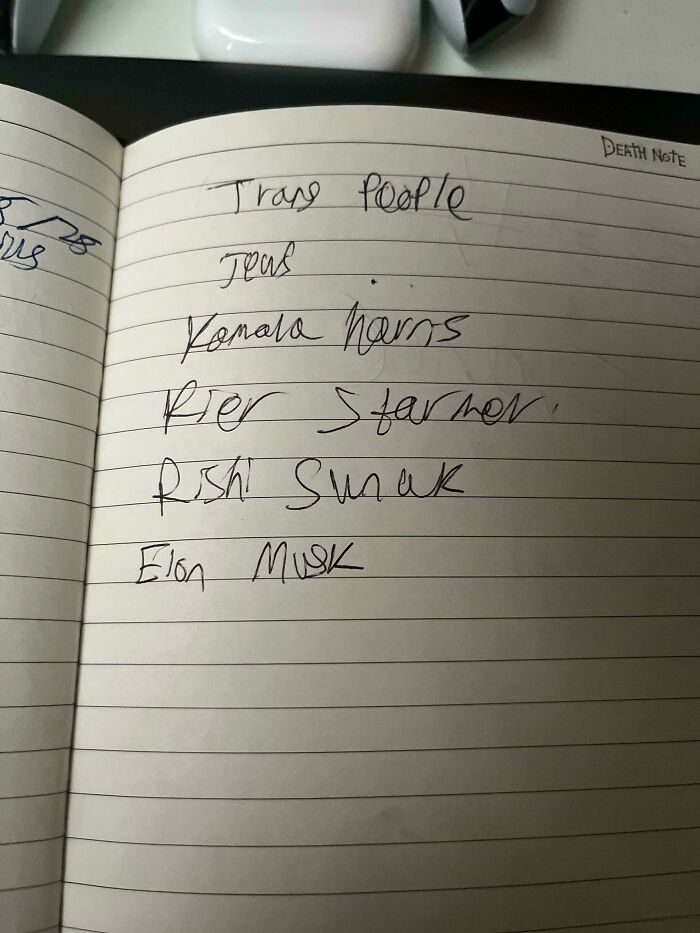 DEATH NOTE
Trans People
Jews
Kamala harris
Kier Starmer
Rishi Sunak
Elon Musk